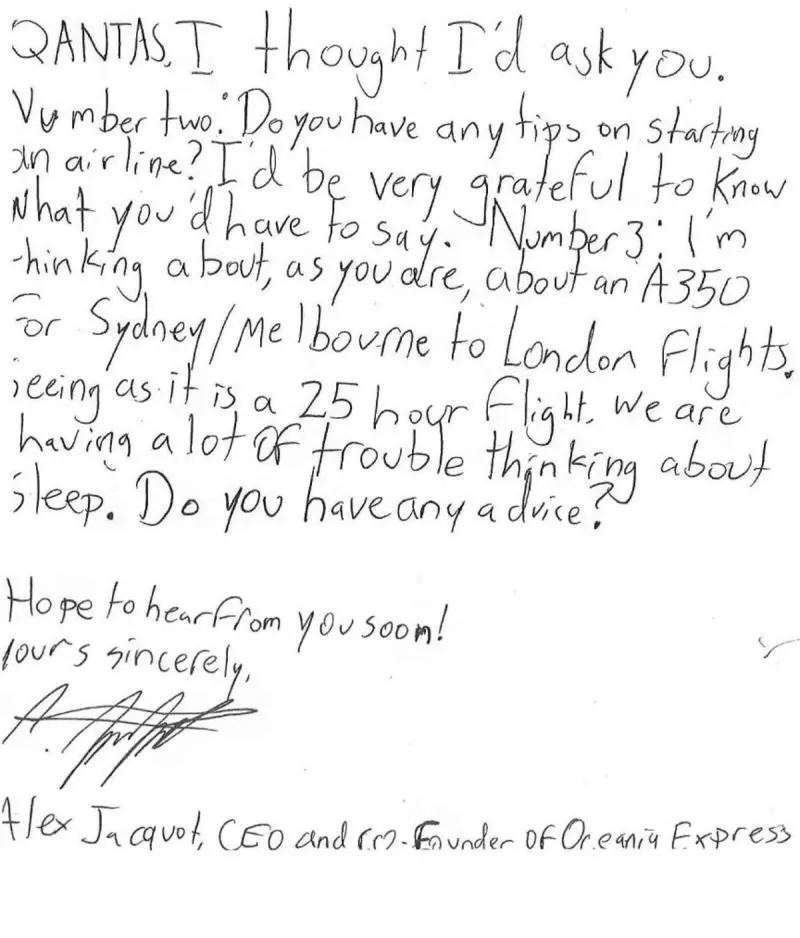 QANTAS, I thought I'd ask you.
Number two: Do you have any tips on starting
an airline? I'd be very grateful to know
what you'd have to say. Number 3: I'm
thinking about, as you are, about an A350
for Sydney/Melbourne to London flights.
Seeing as it is a 25 hour flight, we are
having a lot of trouble thinking about
sleep. Do you have any advice?
Hope to hear from you soon!
Yours sincerely,
Alex Jacquot, CEO and co-Founder of Oceania Express